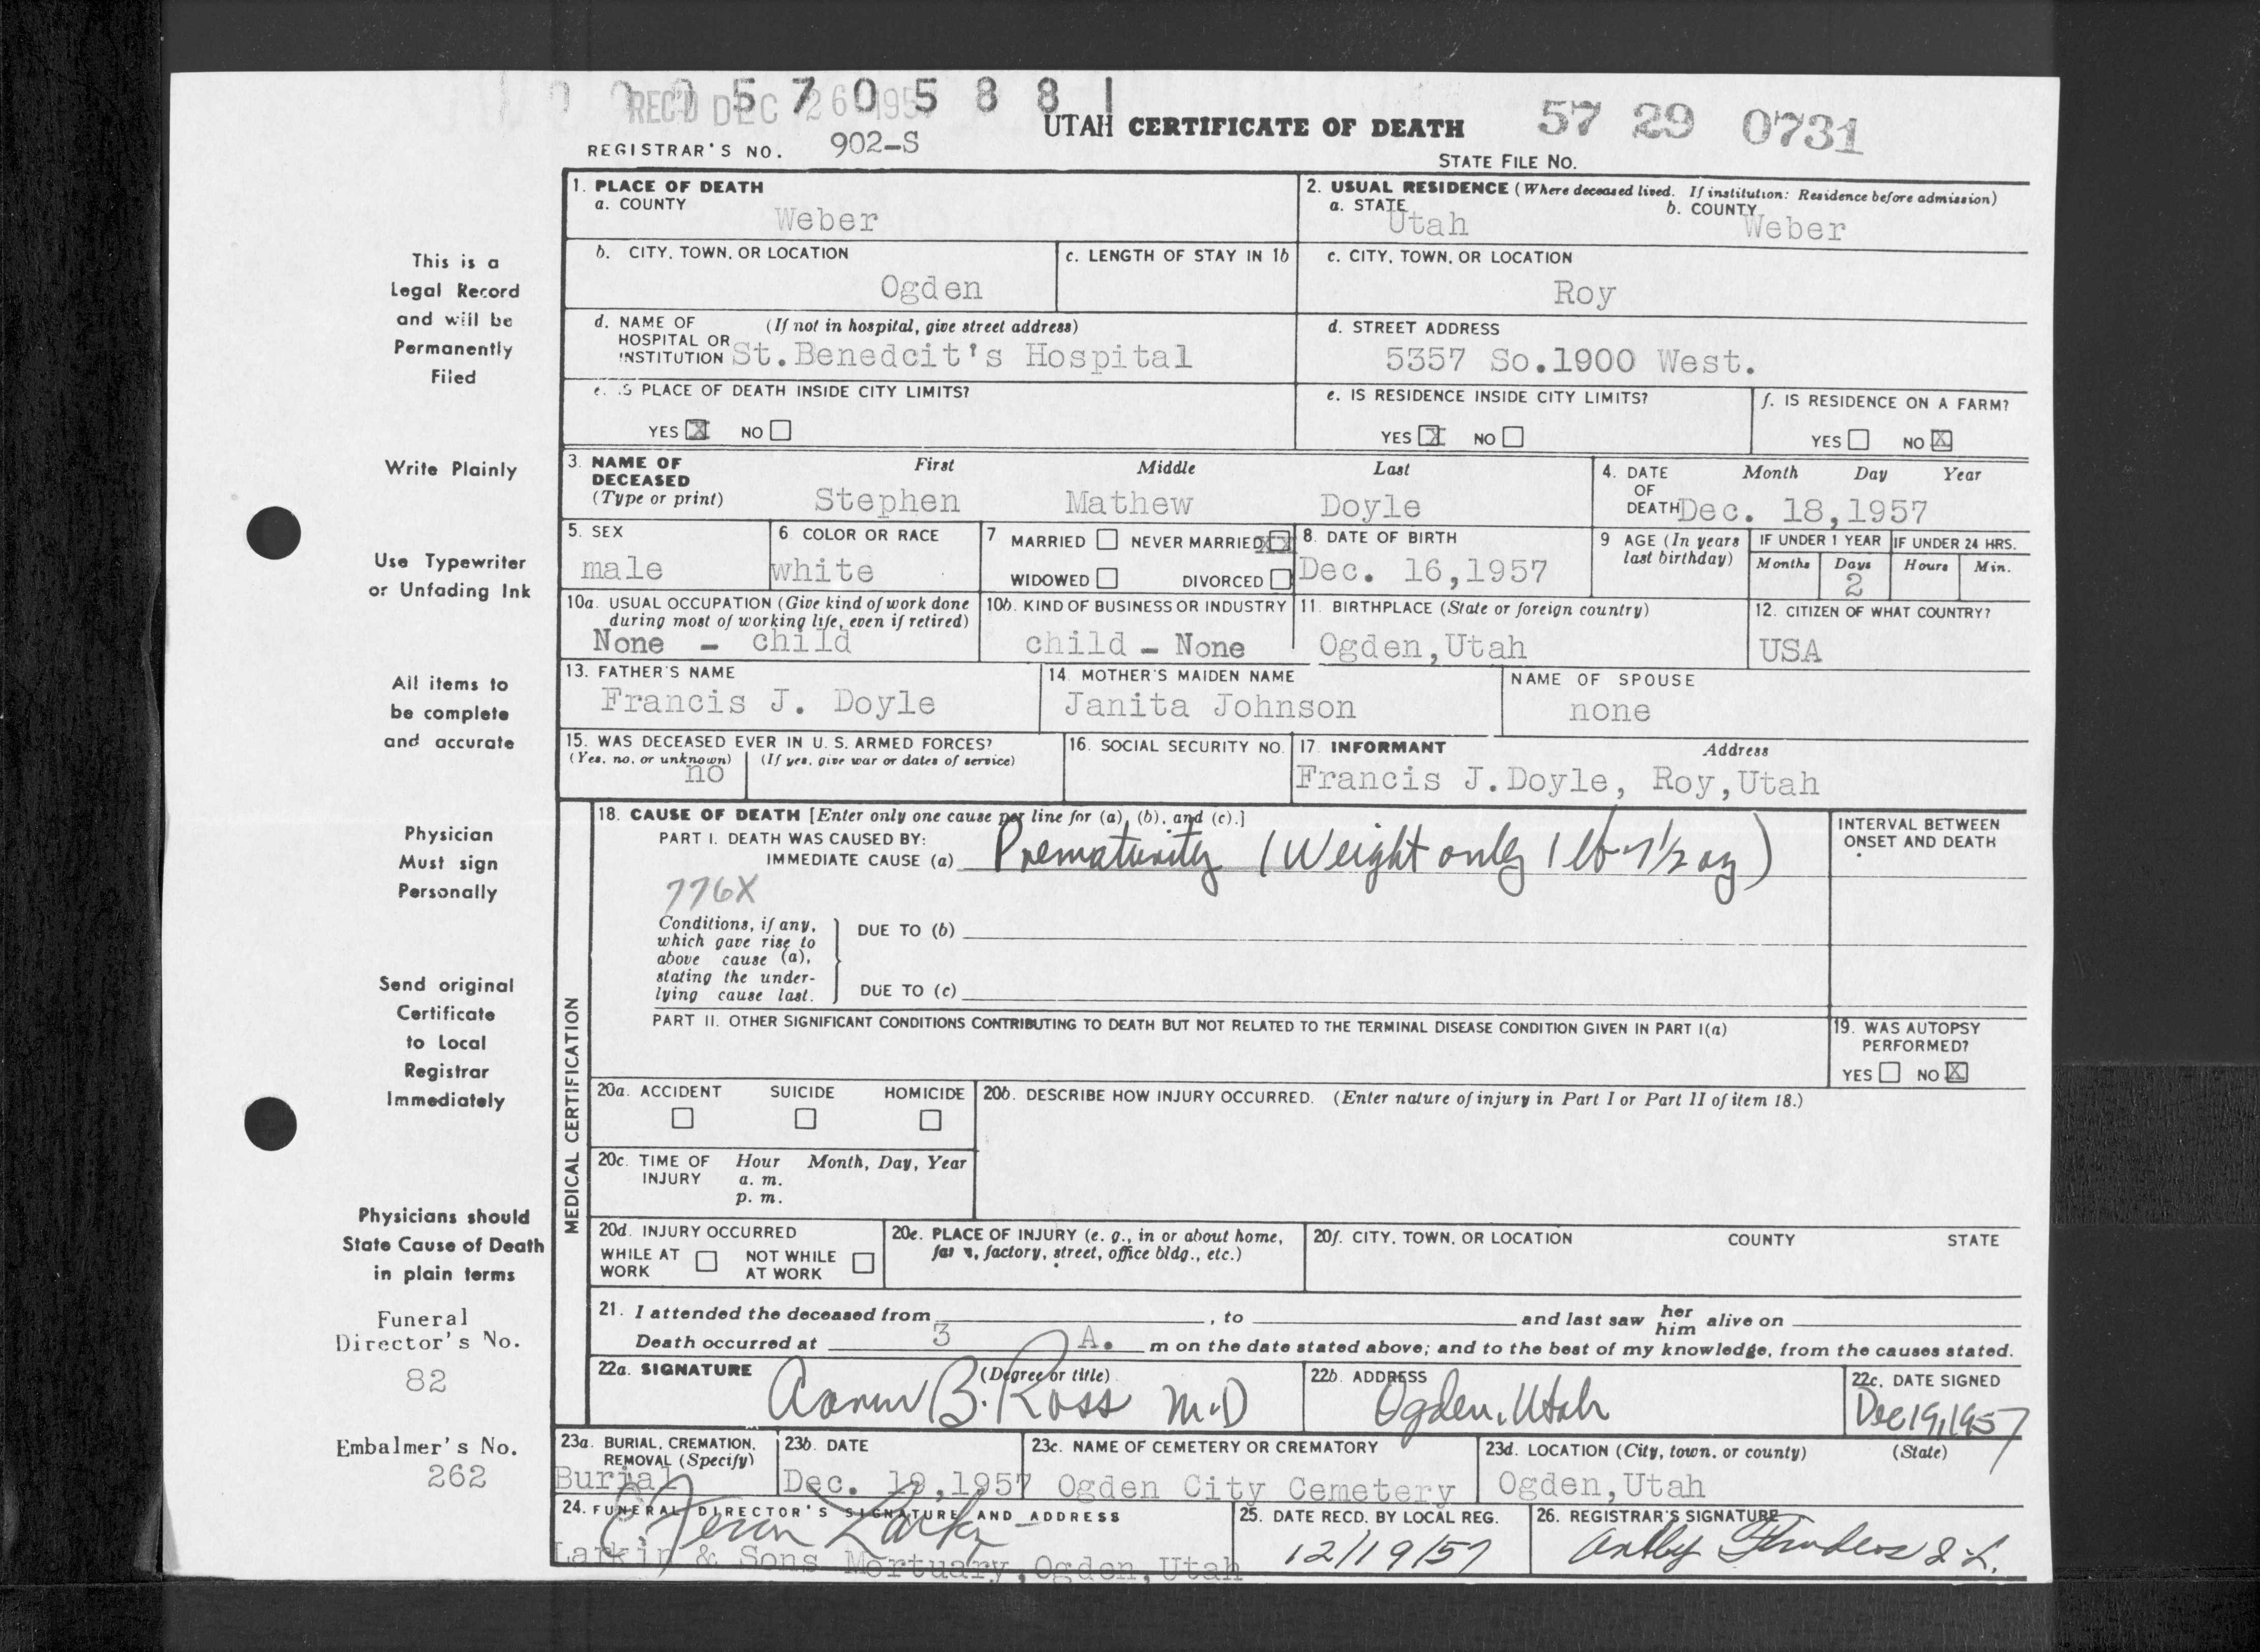 0 0 0 5 7 0 5 8 8 1
REC'D DEC 26 195
UTAH CERTIFICATE OF DEATH 57 29 0731
REGISTRAR'S NO. 902-S STATE FILE NO.
1. PLACE OF DEATH
a. COUNTY
Weber
2. USUAL RESIDENCE (Where deceased lived. If institution: Residence before admission)
a. STATE Utah b. COUNTY Weber
b. CITY, TOWN, OR LOCATION
Ogden
c. LENGTH OF STAY IN 1b
c. CITY, TOWN, OR LOCATION
Roy
d. NAME OF (If not in hospital, give street address)
HOSPITAL OR
INSTITUTION St.Benedcit's Hospital
d. STREET ADDRESS
5357 So.1900 West.
e. IS PLACE OF DEATH INSIDE CITY LIMITS?
YES X NO
e. IS RESIDENCE INSIDE CITY LIMITS?
YES X NO
f. IS RESIDENCE ON A FARM?
YES NO X
3. NAME OF DECEASED (Type or print)
First Middle Last
Stephen Mathew Doyle
4. DATE OF DEATH Month Day Year
Dec. 18,1957
5. SEX
male
6. COLOR OR RACE
white
7. MARRIED NEVER MARRIED XX
WIDOWED DIVORCED
8. DATE OF BIRTH
Dec. 16,1957
9. AGE (In years last birthday)
IF UNDER 1 YEAR IF UNDER 24 HRS.
Months Days Hours Min.
2
10a. USUAL OCCUPATION (Give kind of work done
during most of working life, even if retired)
None - child
10b. KIND OF BUSINESS OR INDUSTRY
child - None
11. BIRTHPLACE (State or foreign country)
Ogden,Utah
12. CITIZEN OF WHAT COUNTRY?
USA
13. FATHER'S NAME
Francis J. Doyle
14. MOTHER'S MAIDEN NAME
Janita Johnson
NAME OF SPOUSE
none
15. WAS DECEASED EVER IN U. S. ARMED FORCES?
(Yes, no, or unknown) (If yes, give war or dates of service)
no
16. SOCIAL SECURITY NO.
17. INFORMANT Address
Francis J.Doyle, Roy,Utah
MEDICAL CERTIFICATION
18. CAUSE OF DEATH [Enter only one cause per line for (a), (b), and (c).]
PART I. DEATH WAS CAUSED BY:
IMMEDIATE CAUSE (a) Prematurity (Weight only 1 lb-7 1/2 oz)
INTERVAL BETWEEN
ONSET AND DEATH
776X
Conditions, if any,
which gave rise to
above cause (a),
stating the under-
lying cause last.
DUE TO (b)
DUE TO (c)
PART II. OTHER SIGNIFICANT CONDITIONS CONTRIBUTING TO DEATH BUT NOT RELATED TO THE TERMINAL DISEASE CONDITION GIVEN IN PART I(a)
19. WAS AUTOPSY
PERFORMED?
YES NO X
20a. ACCIDENT SUICIDE HOMICIDE
20b. DESCRIBE HOW INJURY OCCURRED. (Enter nature of injury in Part I or Part II of item 18.)
20c. TIME OF INJURY Hour Month, Day, Year
a. m.
p. m.
20d. INJURY OCCURRED
WHILE AT WORK NOT WHILE AT WORK
20e. PLACE OF INJURY (e. g., in or about home,
farm, factory, street, office bldg., etc.)
20f. CITY, TOWN, OR LOCATION COUNTY STATE
21. I attended the deceased from , to and last saw her him alive on
Death occurred at 3 A. m on the date stated above; and to the best of my knowledge, from the causes stated.
22a. SIGNATURE (Degree or title)
Aaron B. Ross M.D
22b. ADDRESS
Ogden, Utah
22c. DATE SIGNED
Dec 19, 1957
23a. BURIAL, CREMATION,
REMOVAL (Specify)
Burial
23b. DATE
Dec. 19,1957
23c. NAME OF CEMETERY OR CREMATORY
Ogden City Cemetery
23d. LOCATION (City, town, or county) (State)
Ogden,Utah
24. FUNERAL DIRECTOR'S SIGNATURE AND ADDRESS
Larkin & Sons Mortuary,Ogden,Utah
25. DATE RECD. BY LOCAL REG.
12/19/57
26. REGISTRAR'S SIGNATURE
This is a
Legal Record
and will be
Permanently
Filed
Write Plainly
Use Typewriter
or Unfading Ink
All items to
be complete
and accurate
Physician
Must sign
Personally
Send original
Certificate
to Local
Registrar
Immediately
Physicians should
State Cause of Death
in plain terms
Funeral
Director's No.
82
Embalmer's No.
262